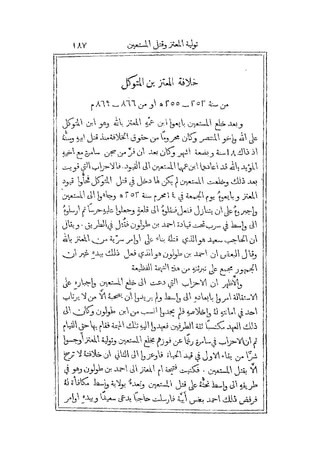 تولية المعتز وقتل المستعين ١٨٧
خلافة المعتز بن المتوكل
من سنة ٢٥٢ ــ ٢٥٥ ه او من ٨٦٦ ــ ٨٦٩ م
وبعد خلع المستعين بايعوا ابن عمه المعتز بالله وهو ابن المتوكل
على الله واخو المنتصر وكان محروما من حقوق الخلافة منذ قتل ابيه وسنه
اذ ذاك ١٨ سنة وبضعة اشهر وكان بعد ان فر من سجن سامرة مع اخيه
المؤيد بالله قد اعادهما ابن عمهما المستعين الى القيود. فالاحزاب التي قويت
بعد ذلك وخلعت المستعين لم يكن لها دخل في قتل المتوكل فحلوا قيود
المعتز وبايعوه يوم الجمعة في ٤ محرم سنة ٢٥٢ ه وجاءوا الى المستعين
واجبروه على ان يتنازل ففعل فنقلوه الى قلعة وجعلوا عليه حرسا ثم ارسلوه
الى واسط في سرب تحت قيادة احمد بن طولون فقتل في الطريق. ويقال
ان الحاجب سعيد هو الذي قتله بناء على اوامر سرية من المعتز بالله
وقال البعض ان احمد بن طولون هو الذي فعل ذلك بيده غير ان
الجمهور مجمع على تبرئته من هذه التهمة الفظيعة
والاظهر ان الاحزاب التي دعت الى خلع المستعين واجباره على
الاستقالة امروا بابعاده الى واسط ولم يريدوا ان بصحبة الا من لا يرتاب
احد في امانته له واخلاصه فلم يجدوا انسب من ابن طولون وكان الى
ذلك العهد مكتسبا ثقة الطرفين فعهدوا اليه تلك المهمة فقام بها حق القيام
ثم ان الاحزاب في سامرة رغما عن فوزهم بخلع المستعين وتولية المعتز اوجسوا
شرا من بقاء الاول في قيد الحياة. فاوعزوا الى الثاني ان خلافته لا ترسخ
الا بقتل المستعين. فكتبت قبيحة ام المعتز الى احمد بن طولون وهو في
طريقه الى واسط تحثه على قتل المستعين وتعده بولاية واسط مكافأة له
فرفض ذلك احمد بغض أبية فارسلت حاجبا يدعى سعيدا وبيده اوامر